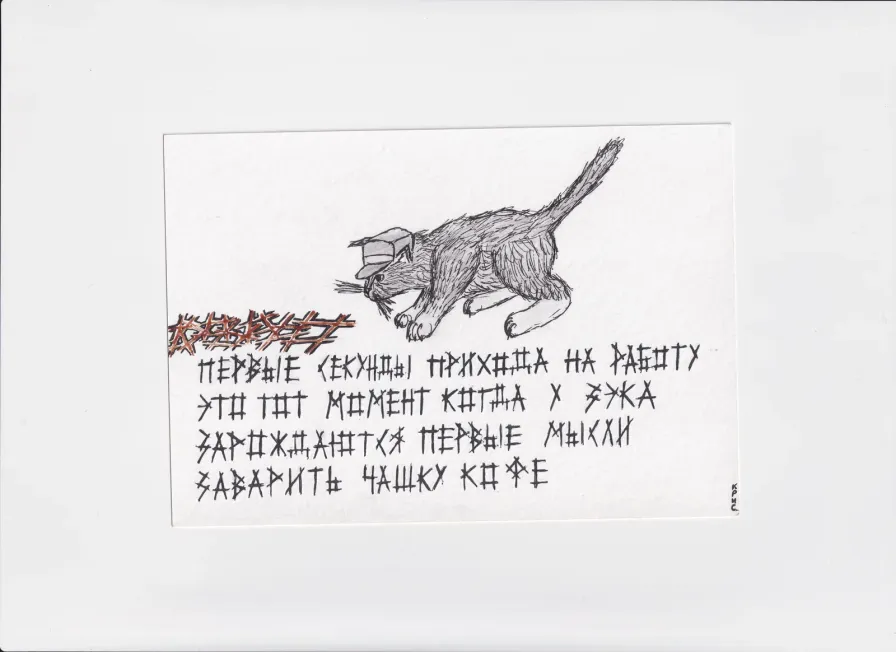 ПЕРВЫЕ СЕКУНДЫ ПРИХОДА НА РАБОТУ
ЭТО ТОТ МОМЕНТ КОГДА У ЗЭКА
ЗАРОЖДАЮТСЯ ПЕРВЫЕ МЫСЛИ
ЗАВАРИТЬ ЧАШКУ КОФЕ
КРИС